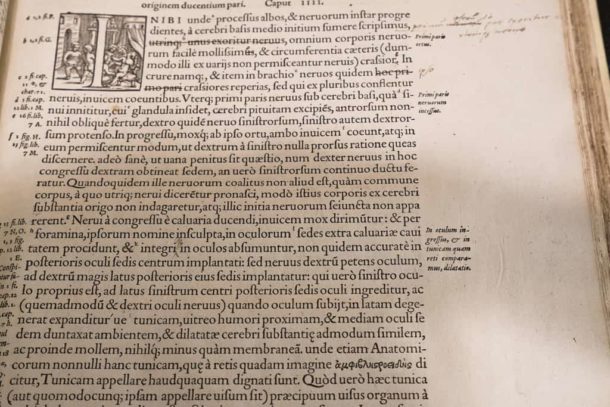 originem ducentium pari. Caput IIII.
INIBI unde processus albos, & neruorum instar progre
dientes, à cerebri basis medio initium sumere scripsimus,
utrinq; unus exoritur neruus, omnium corporis neruo-
rum facilè mollissimus, & circumferentia cæteris (dum-
modo illi ex uarijs non permisceantur neruis) crasior. In
crure namq;, & item in brachio neruos quidem hoc pri-
mo pari crasiores reperias, sed qui ex pluribus consentur
neruis, inuicem coeuntibus. Vterq; primi paris neruus sub cerebri basi, quà si-
nui innititur, cui glandula insidet, cerebri pituitam excipiēs, antrorsum non-
nihil obliquè fertur, dextro quidē neruo sinistrorsum, sinistro autem dextror-
sum protenso. In progressu, moxq́; ab ipso ortu, ambo inuicem coeunt, atq; in-
eum permiscentur modum, ut dextrum à sinistro nulla prorsus ratione queas
discernere. adeò sanè, ut uana penitus sit quæstio, num dexter neruus in hoc
congressu dextram obtineat sedem, an uerò sinistrorsum continuo ductu fe-
ratur. Quandoquidem ille neruorum coalitus non aliud est, quàm commune
corpus, à quo utriq; nerui dicerētur pronasci, modò istius corporis ex cerebri
substantia origo non negaretur, atq; illic initia neruorum seiuncta non appa
rerent. Nerui à congressu è caluaria ducendi, inuicem mox dirimūtur: & per
foramina, ipsorum nomine insculpta, in oculorum sedes extra caluariæ caui
tatem procidunt, & integri in oculos absumuntur, non quidem accuratè in
posterioris oculi sedis centrum implantati: sed neruus dextrū petens oculum,
ad dextrū magis latus posterioris eius sedis implantatur: qui uerò sinistro ocu-
lo proprius est, ad latus sinistrum centri posterioris sedis oculi ingreditur, ac
(quemadmodū & dextri oculi neruus) quando oculum subijt, in latam dege-
nerat expanditur ue tunicam, uitreo humori proximam, & mediam oculi se
dem duntaxat ambientem, & dilatatæ cerebri substantię admodum similem,
ac proinde mollem, nihilq́; minus quàm membraneā. unde etiam Anatomi-
corum nonnulli hanc tunicam, quę à retis quadam imagine ἀμφιβληςροειδὴς di
citur, Tunicam appellare haudquaquam dignati sunt. Quòd uerò hæc tunica
(aut quomodocunq; ipsam appellare uisum sit) præcipuum uisus organum à
Primi paris
ortus.
Primi paris
neruorum
incessus.
In oculum in
gressus, & in
tunicam quam
reti compara-
mus, dilatatio.